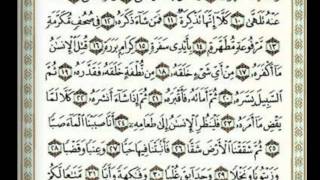 عَنْهُ تَلَهَّىٰ ١٠ كَلَّا إِنَّهَا تَذْكِرَةٌ ١١ فَمَن شَاءَ ذَكَرَهُ ١٢ فِي صُحُفٍ مُّكَرَّمَةٍ
١٣ مَّرْفُوعَةٍ مُّطَهَّرَةٍ ١٤ بِأَيْدِي سَفَرَةٍ ١٥ كِرَامٍ بَرَرَةٍ ١٦ قُتِلَ الْإِنسَٰنُ
مَا أَكْفَرَهُ ١٧ مِنْ أَيِّ شَيْءٍ خَلَقَهُ ١٨ مِن نُّطْفَةٍ خَلَقَهُ فَقَدَّرَهُ ١٩ ثُمَّ
السَّبِيلَ يَسَّرَهُ ٢٠ ثُمَّ أَمَاتَهُ فَأَقْبَرَهُ ٢١ ثُمَّ إِذَا شَاءَ أَنشَرَهُ ٢٢ كَلَّا لَمَّا
يَقْضِ مَا أَمَرَهُ ٢٣ فَلْيَنظُرِ الْإِنسَٰنُ إِلَىٰ طَعَامِهِ ٢٤ أَنَّا صَبَبْنَا الْمَاءَ صَبًّا
٢٥ ثُمَّ شَقَقْنَا الْأَرْضَ شَقًّا ٢٦ فَأَنبَتْنَا فِيهَا حَبًّا ٢٧ وَعِنَبًا وَقَضْبًا ٢٨
وَزَيْتُونًا وَنَخْلًا ٢٩ وَحَدَائِقَ غُلْبًا ٣٠ وَفَٰكِهَةً وَأَبًّا ٣١ مَّتَٰعًا لَّكُمْ